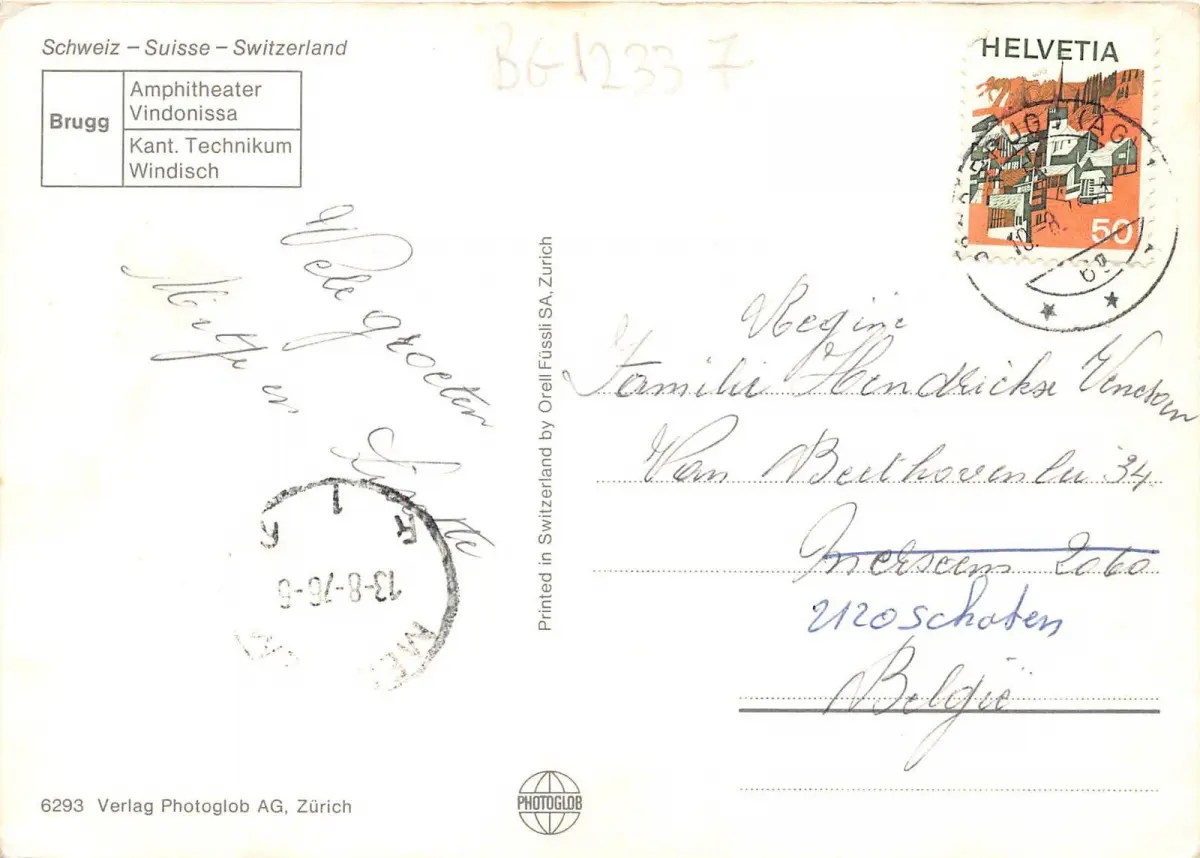 Schweiz – Suisse – Switzerland
Brugg
Amphitheater
Vindonissa
Kant. Technikum
Windisch
BG 1233 7
HELVETIA
50
BRUGG (AG)
10.-8.
Vele groeten
Mitje en
Printed in Switzerland by Orell Füssli SA, Zurich
Regine
Familie Hendrickse
Van Beethovenlei 34
Merksem 2060
2120 Schoten
België
1
13-8-76-
ME
6293 Verlag Photoglob AG, Zürich
PHOTOGLOB